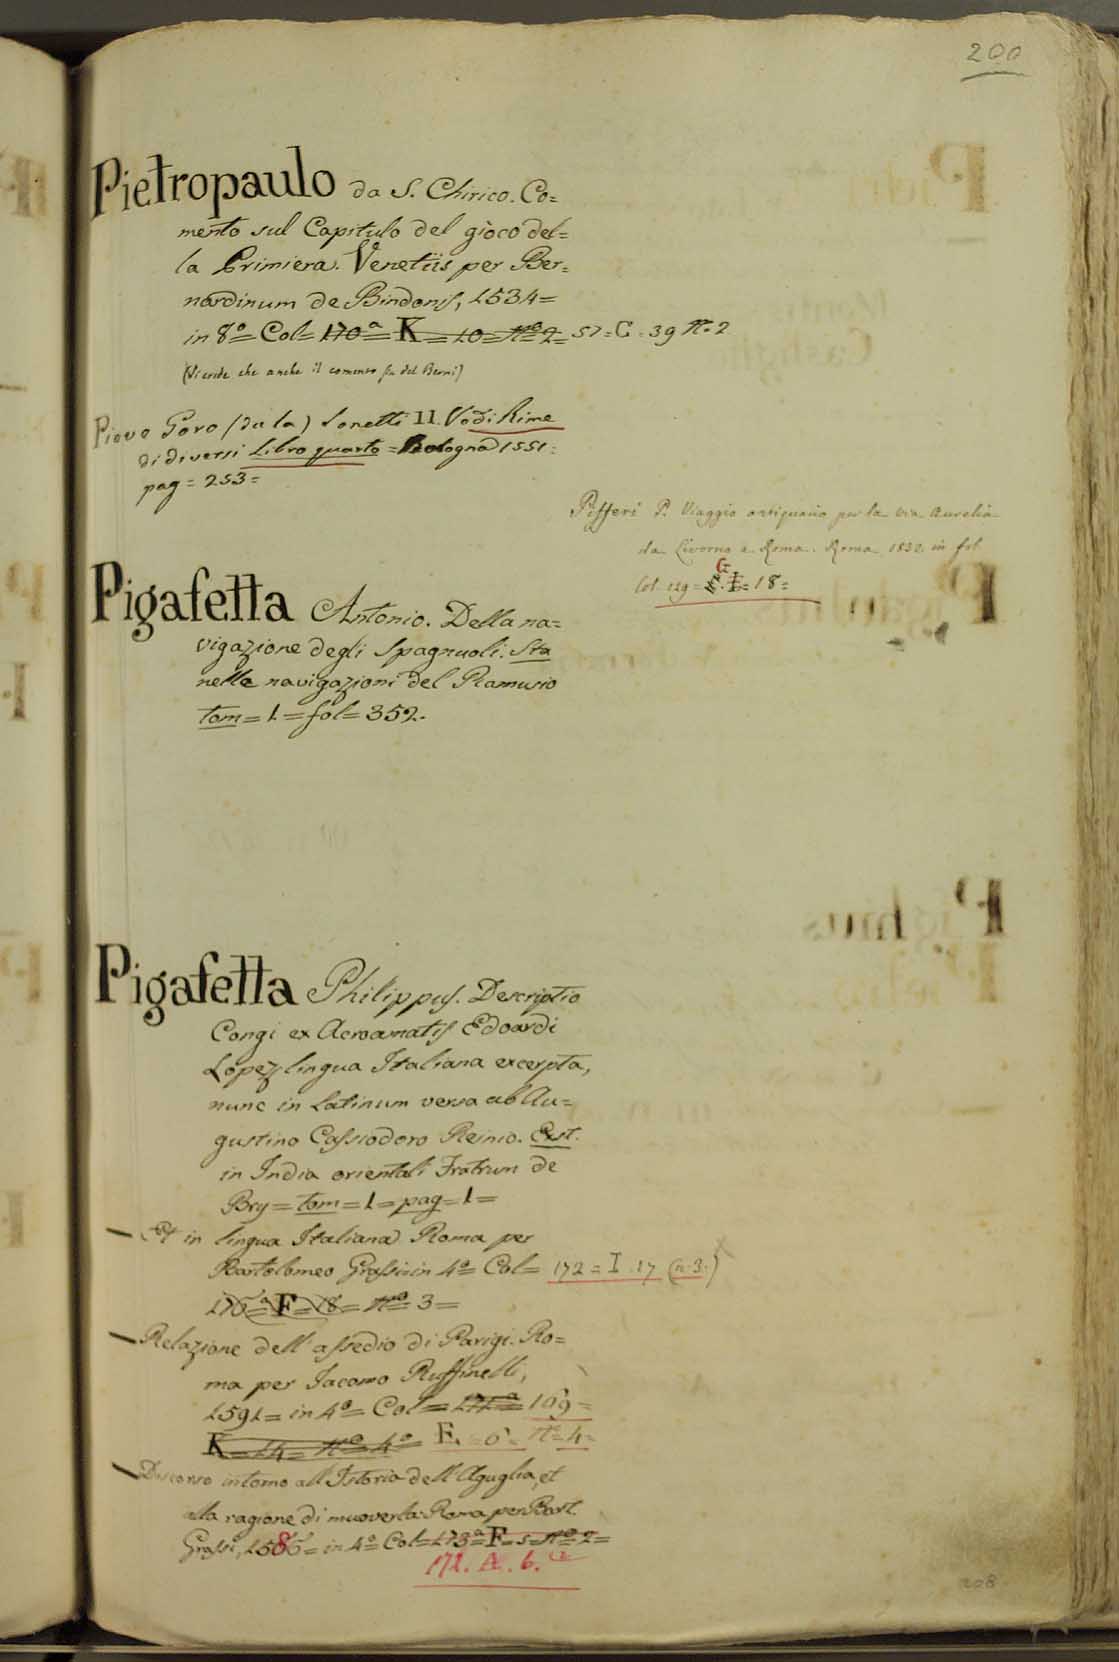 200
Pietropaulo da S. Chirico. Co=
mento sul Capitulo del gioco del=
la Primiera. Venetiis per Ber=
nardinum de Bindonis, 1534=
in 8º= Col= 170ª= K= 10= nº 2= 57= C= 39 n. 2
(Vi crede che anche il comento sia del Berni)
Pieve Goro (da la) Sonetti II. Vedi Rime
di diversi Libro quarto = Bologna 1551=
pag= 253=
Pifferi P. Viaggio antiquario per la via Aurelia
da Livorno a Roma. Roma 1832 in fol.
Col. 129= G = 18=
Pigafetta Antonio. Della na=
vigazione degli Spagnuoli. Sta
nelle navigazioni del Ramusio
tom= 1= fol= 352.
Pigafetta Philippus. Descriptio
Congi ex Acroamatis Edoardi
Lopez lingua Italiana excerpta,
nunc in Latinum versa ab Au=
gustino Cassiodoro Reinio. Exst.
in India orientali Fratrum de
Bry= tom= 1= pag= 1=
— Et in lingua Italiana Roma per
Bartolomeo Grassi in 4º= Col= 172= I. 17 (n. 3.)
176ª= F= 18= nº 3=
— Relazione dell'assedio di Parigi. Ro=
ma per Iacomo Ruffinelli,
1591= in 4º= Col= 109=
K= 14= nº 4º E.= 6= n= 4=
— Discorso intorno all'Istoria dell'Aguglia, et
alla ragione di muoverla. Roma per Bart.
Grassi, 1586= in 4º= Col= 173ª= F= 5= nº 2=
172. A. 6.
208